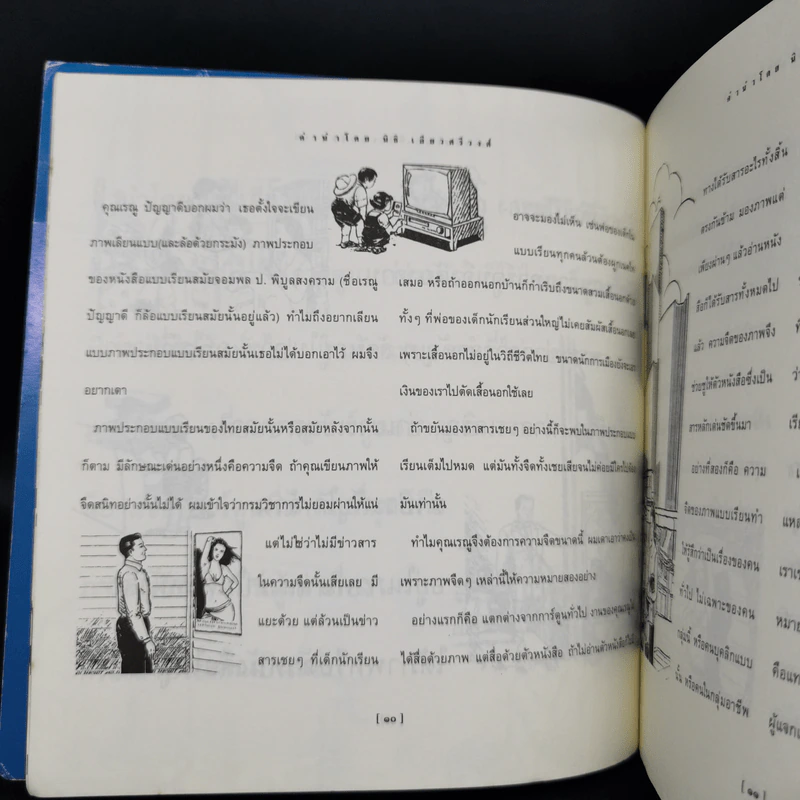 คำนำโดย นิธิ เอียวศรีวงศ์
คุณเรณู ปัญญาดีบอกผมว่า เธอตั้งใจจะเขียน
ภาพเลียนแบบ(และล้อด้วยกระมัง) ภาพประกอบ
ของหนังสือแบบเรียนสมัยจอมพล ป. พิบูลสงคราม (ชื่อเรณู
ปัญญาดี ก็ล้อแบบเรียนสมัยนั้นอยู่แล้ว) ทำไมถึงอยากเลียน
แบบภาพประกอบแบบเรียนสมัยนั้นเธอไม่ได้บอกเอาไว้ ผมจึง
อยากเดา
ภาพประกอบแบบเรียนของไทยสมัยนั้นหรือสมัยหลังจากนั้น
ก็ตาม มีลักษณะเด่นอย่างหนึ่งคือความจืด ถ้าคุณเขียนภาพให้
จืดสนิทอย่างนั้นไม่ได้ ผมเข้าใจว่ากรมวิชาการไม่ยอมผ่านให้แน่
แต่ไม่ใช่ว่าไม่มีข่าวสาร
ในความจืดนั้นเสียเลย มี
แยะด้วย แต่ล้วนเป็นข่าว
สารเชยๆ ที่เด็กนักเรียน
อาจจะมองไม่เห็น เช่นพ่อของเด็กใน
แบบเรียนทุกคนล้วนต้องผูกเนคไท
เสมอ หรือถ้าออกนอกบ้านก็กำเริบถึงขนาดสวมเสื้อนอกด้วย
ทั้งๆ ที่พ่อของเด็กนักเรียนส่วนใหญ่ไม่เคยสัมผัสเสื้อนอกเลย
เพราะเสื้อนอกไม่อยู่ในวิถีชีวิตไทย ขนาดนักการเมืองยังจะเอา
เงินของเราไปตัดเสื้อนอกใช้เลย
ถ้าขยันมองหาสารเชยๆ อย่างนี้ก็จะพบในภาพประกอบแบบ
เรียนเต็มไปหมด แต่มันทั้งจืดทั้งเชยเสียจนไม่ค่อยมีใครไปพินิจ
มันเท่านั้น
ทำไมคุณเรณูจึงต้องการความจืดขนาดนี้ ผมเดาเอาว่าคงเป็น
เพราะภาพจืดๆ เหล่านี้ให้ความหมายสองอย่าง
อย่างแรกก็คือ แตกต่างจากการ์ตูนทั่วไป งานของคุณเรณู
ได้สื่อด้วยภาพ แต่สื่อด้วยตัวหนังสือ ถ้าไม่อ่านตัวหนังสือก็ไม่มี
[ ๑๐ ]
คำนำโดย นิ
ทางได้รับสารอะไรทั้งสิ้น
ตรงกันข้าม มองภาพแต่
เพียงผ่านๆ แล้วอ่านหนัง
สือก็ได้รับสารทั้งหมดไป
แล้ว ความจืดของภาพจึง
ช่วยชูให้ตัวหนังสือซึ่งเป็น
สารหลักเด่นชัดขึ้นมา
อย่างที่สองก็คือ ความ
จืดของภาพแบบเรียนทำ
ให้รู้สึกว่าเป็นเรื่องของคน
ทั่วไป ไม่เฉพาะของคน
กลุ่มนี้ หรือคนบุคลิกแบบ
นั้น หรือคนในกลุ่มอาชีพ
[ ๑๑ ]